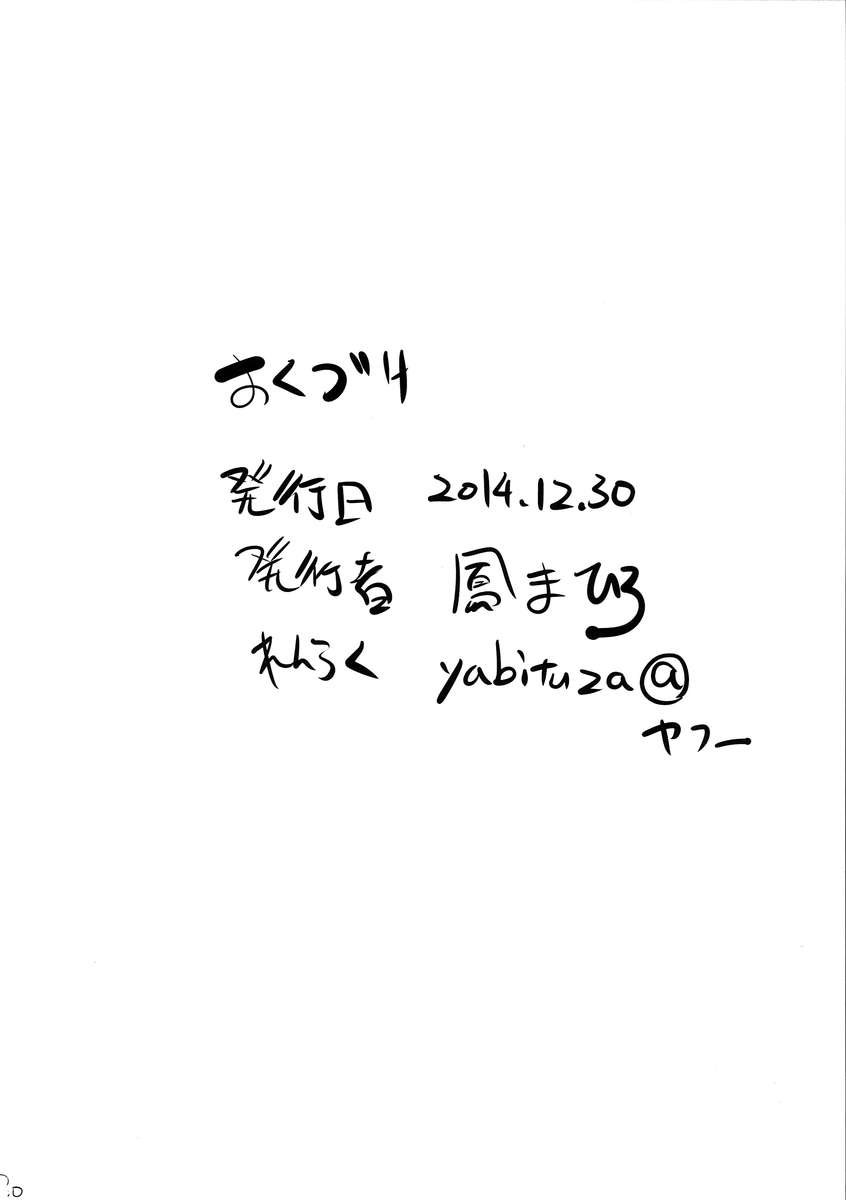 おくづけ
発行日 2014.12.30
発行者 鳳まひろ
れんらく yabituza@
ヤフー